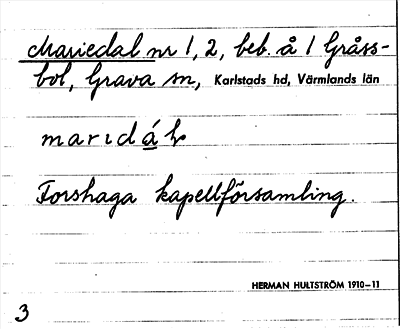 Mariedal nr 1, 2, beb. å 1 Gråss-
bol, Grava sn, Karlstads hd, Värmlands län
Forshaga kapellförsamling.
HERMAN HULTSTRÖM 1910–11
3